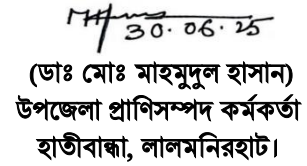 30.06.25
(ডাঃ মোঃ মাহমুদুল হাসান)
উপজেলা প্রাণিসম্পদ কর্মকর্তা
হাতীবান্ধা, লালমনিরহাট।